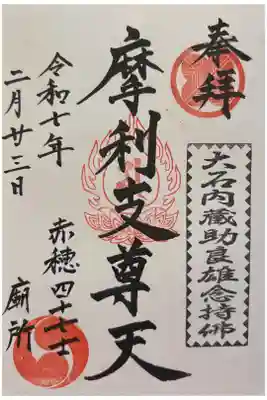 奉拝
大石内蔵助良雄念持佛
摩利支尊天
赤穂四十七士
廟所
令和七年
二月廿三日